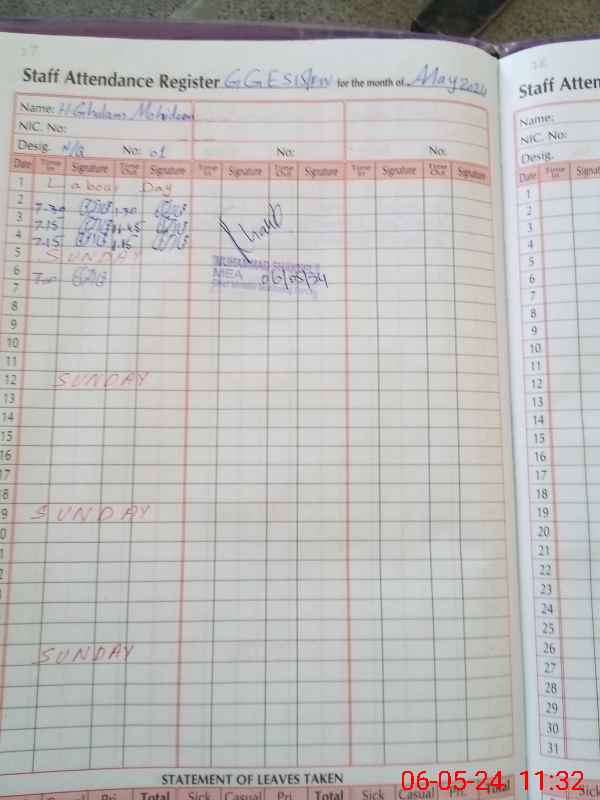 27
Staff Attendance Register GGESISFW for the month of May 2024
Name: H Ghulam Mohudeen
NIC. No:
Desig. N/Q No: 01 No: No:
Date Time In Signature Time Out Signature Time In Signature Time Out Signature Time In Signature Time Out Signature
1 Labour Day
2 7-30 1.30
3 7.15
4 7.15
5 SUNDAY
6 7.00
7
8
9
10
11
12 SUNDAY
13
14
15
16
17
18
9 SUNDAY
0
1
2
SUNDAY
MUHAMMAD
MEA 06/05/24
STATEMENT OF LEAVES TAKEN
Casual Pri. Total Sick Casual Pri. Total Sick Casual Pri. Total Sick
28
Staff Atten
Name:
NIC. No:
Desig.
Date Time In Signat
1
2
3
4
5
6
7
8
9
10
11
12
13
14
15
16
17
18
19
20
21
22
23
24
25
26
27
28
29
30
31
06-05-24 11:32